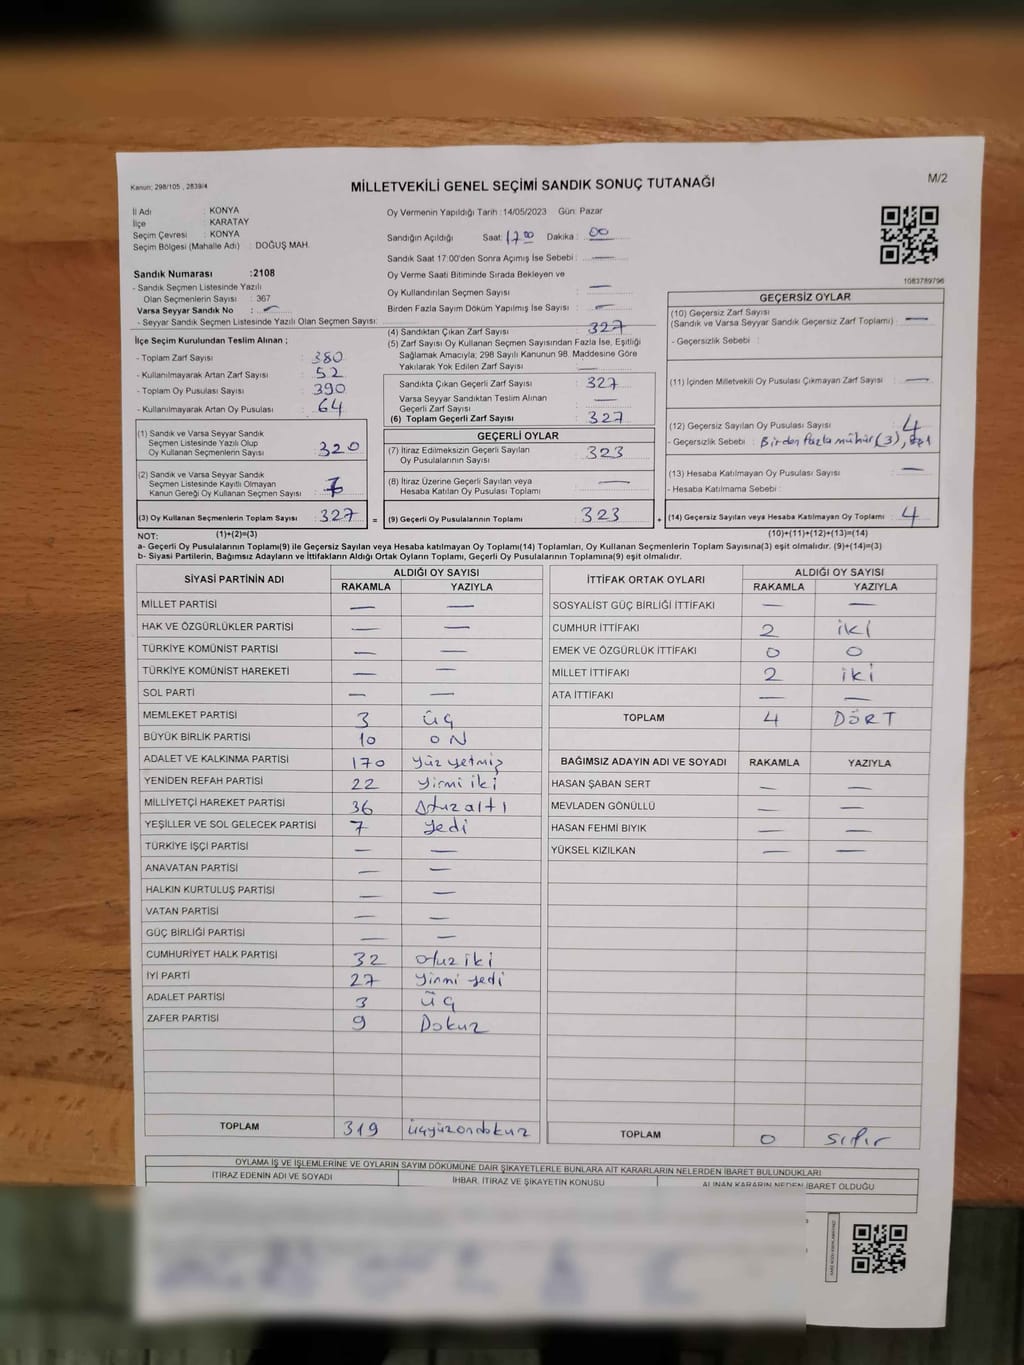 Kanun; 298/105 , 2839/4
MİLLETVEKİLİ GENEL SEÇİMİ SANDIK SONUÇ TUTANAĞI
M/2
İl Adı : KONYA
İlçe : KARATAY
Seçim Çevresi : KONYA
Seçim Bölgesi (Mahalle Adı) : DOĞUŞ MAH.
Oy Vermenin Yapıldığı Tarih :14/05/2023 Gün: Pazar
Sandığın Açıldığı Saat: 17 00 Dakika : 00
Sandık Saat 17:00'den Sonra Açımış İse Sebebi : —
Oy Verme Saati Bitiminde Sırada Bekleyen ve
Oy Kullandırılan Seçmen Sayısı —
Birden Fazla Sayım Döküm Yapılmış İse Sayısı : —
1083789796
Sandık Numarası :2108
- Sandık Seçmen Listesinde Yazılı
Olan Seçmenlerin Sayısı : 367
Varsa Seyyar Sandık No : —
- Seyyar Sandık Seçmen Listesinde Yazılı Olan Seçmen Sayısı:
İlçe Seçim Kurulundan Teslim Alınan ;
- Toplam Zarf Sayısı 380
- Kullanılmayarak Artan Zarf Sayısı 52
- Toplam Oy Pusulası Sayısı 390
- Kullanılmayarak Artan Oy Pusulası 64
(1) Sandık ve Varsa Seyyar Sandık
Seçmen Listesinde Yazılı Olup
Oy Kullanan Seçmenlerin Sayısı 320
(2) Sandık ve Varsa Seyyar Sandık
Seçmen Listesinde Kayıtlı Olmayan
Kanun Gereği Oy Kullanan Seçmen Sayısı 7
(3) Oy Kullanan Seçmenlerin Toplam Sayısı 327 =
(4) Sandıktan Çıkan Zarf Sayısı 327
(5) Zarf Sayısı Oy Kullanan Seçmen Sayısından Fazla İse, Eşitliği
Sağlamak Amacıyla; 298 Sayılı Kanunun 98. Maddesine Göre
Yakılarak Yok Edilen Zarf Sayısı —
Sandıkta Çıkan Geçerli Zarf Sayısı 327
Varsa Seyyar Sandıktan Teslim Alınan
Geçerli Zarf Sayısı —
(6) Toplam Geçerli Zarf Sayısı 327
GEÇERLİ OYLAR
(7) İtiraz Edilmeksizin Geçerli Sayılan
Oy Pusulalarının Sayısı 323
(8) İtiraz Üzerine Geçerli Sayılan veya
Hesaba Katılan Oy Pusulası Toplamı —
(9) Geçerli Oy Pusulalarının Toplamı 323 +
GEÇERSİZ OYLAR
(10) Geçersiz Zarf Sayısı
(Sandık ve Varsa Seyyar Sandık Geçersiz Zarf Toplamı) —
- Geçersizlik Sebebi :
(11) İçinden Milletvekili Oy Pusulası Çıkmayan Zarf Sayısı —
(12) Geçersiz Sayılan Oy Pusulası Sayısı 4
- Geçersizlik Sebebi : Birden fazla mühür (3),
(13) Hesaba Katılmayan Oy Pusulası Sayısı —
- Hesaba Katılmama Sebebi :
(14) Geçersiz Sayılan veya Hesaba Katılmayan Oy Toplamı 4
NOT: (1)+(2)=(3) (10)+(11)+(12)+(13)=(14)
a- Geçerli Oy Pusulalarının Toplamı(9) ile Geçersiz Sayılan veya Hesaba katılmayan Oy Toplamı(14) Toplamları, Oy Kullanan Seçmenlerin Toplam Sayısına(3) eşit olmalıdır. (9)+(14)=(3)
b- Siyasi Partilerin, Bağımsız Adayların ve İttifakların Aldığı Ortak Oyların Toplamı, Geçerli Oy Pusulalarının Toplamına(9) eşit olmalıdır.
SİYASİ PARTİNİN ADI ALDIĞI OY SAYISI
RAKAMLA YAZIYLA
MİLLET PARTİSİ — —
HAK VE ÖZGÜRLÜKLER PARTİSİ — —
TÜRKİYE KOMÜNİST PARTİSİ — —
TÜRKİYE KOMÜNİST HAREKETİ — —
SOL PARTİ — —
MEMLEKET PARTİSİ 3 üç
BÜYÜK BİRLİK PARTİSİ 10 ON
ADALET VE KALKINMA PARTİSİ 170 yüz yetmiş
YENİDEN REFAH PARTİSİ 22 yirmi iki
MİLLİYETÇİ HAREKET PARTİSİ 36 Otuz altı
YEŞİLLER VE SOL GELECEK PARTİSİ 7 yedi
TÜRKİYE İŞÇİ PARTİSİ — —
ANAVATAN PARTİSİ — —
HALKIN KURTULUŞ PARTİSİ — —
VATAN PARTİSİ — —
GÜÇ BİRLİĞİ PARTİSİ — —
CUMHURİYET HALK PARTİSİ 32 otuz iki
İYİ PARTİ 27 yirmi yedi
ADALET PARTİSİ 3 üç
ZAFER PARTİSİ 9 Dokuz
TOPLAM 319 üçyüzondokuz
İTTİFAK ORTAK OYLARI ALDIĞI OY SAYISI
RAKAMLA YAZIYLA
SOSYALİST GÜÇ BİRLİĞİ İTTİFAKI — —
CUMHUR İTTİFAKI 2 iki
EMEK VE ÖZGÜRLÜK İTTİFAKI 0 0
MİLLET İTTİFAKI 2 iki
ATA İTTİFAKI — —
TOPLAM 4 DÖRT
BAĞIMSIZ ADAYIN ADI VE SOYADI RAKAMLA YAZIYLA
HASAN ŞABAN SERT — —
MEVLADEN GÖNÜLLÜ — —
HASAN FEHMİ BIYIK — —
YÜKSEL KIZILKAN — —
TOPLAM 0 sıfır
OYLAMA İŞ VE İŞLEMLERİNE VE OYLARIN SAYIM DÖKÜMÜNE DAİR ŞİKAYETLERLE BUNLARA AİT KARARLARIN NELERDEN İBARET BULUNDUKLARI
İTİRAZ EDENİN ADI VE SOYADI İHBAR, İTİRAZ VE ŞİKAYETİN KONUSU ALINAN KARARIN NEDEN İBARET OLDUĞU